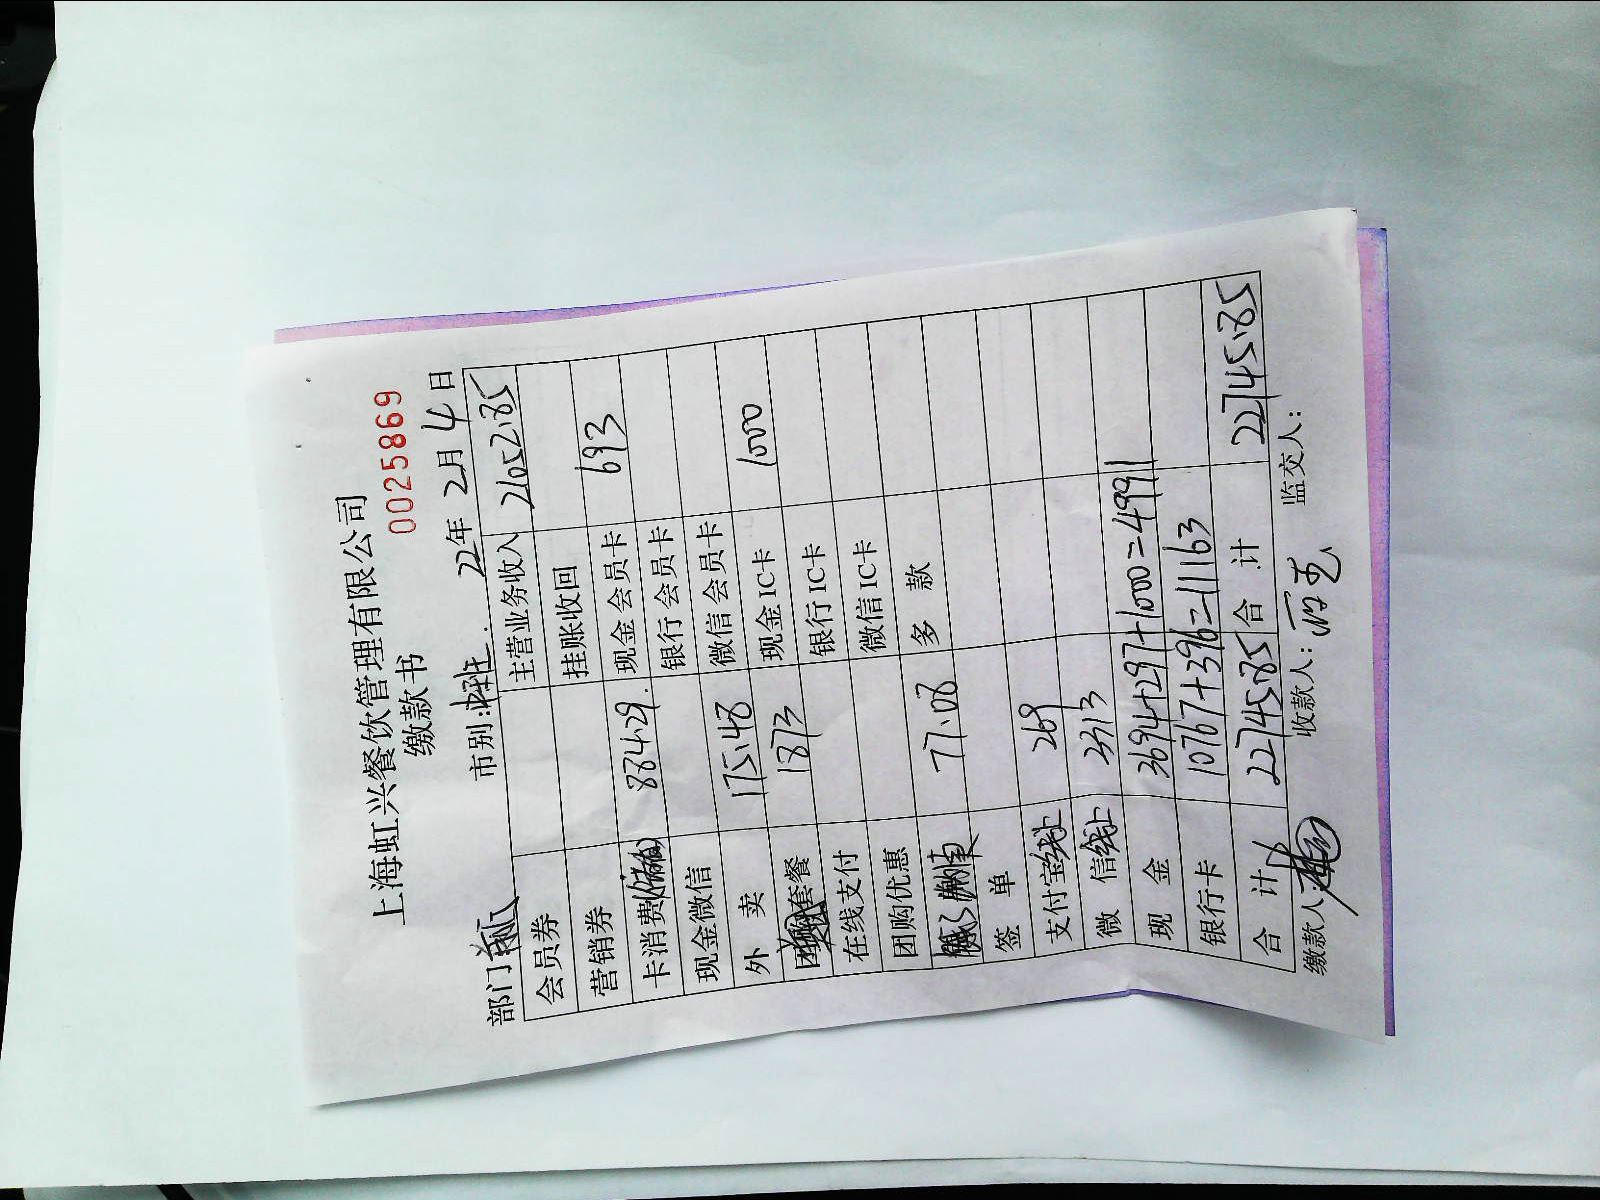 上海虹兴餐饮管理有限公司
缴款书
0025869
部门 市别: 22年 2月 4日
会员券 主营业务收入 21052.85
营销券 挂账收回
卡消费 884.29 现金会员卡 693
现金微信 银行会员卡
外 卖 175.48 微信会员卡
套餐 1873 现金IC卡 1000
在线支付 银行IC卡
团购优惠 微信IC卡
77.08 多 款
签 单
支付宝线上 269
微 信线上 3313
现 金 3694+297+1000=4991
银行卡 10767+396=11163
合 计 22745.85 合 计 22745.85
缴款人: 收款人: 监交人: